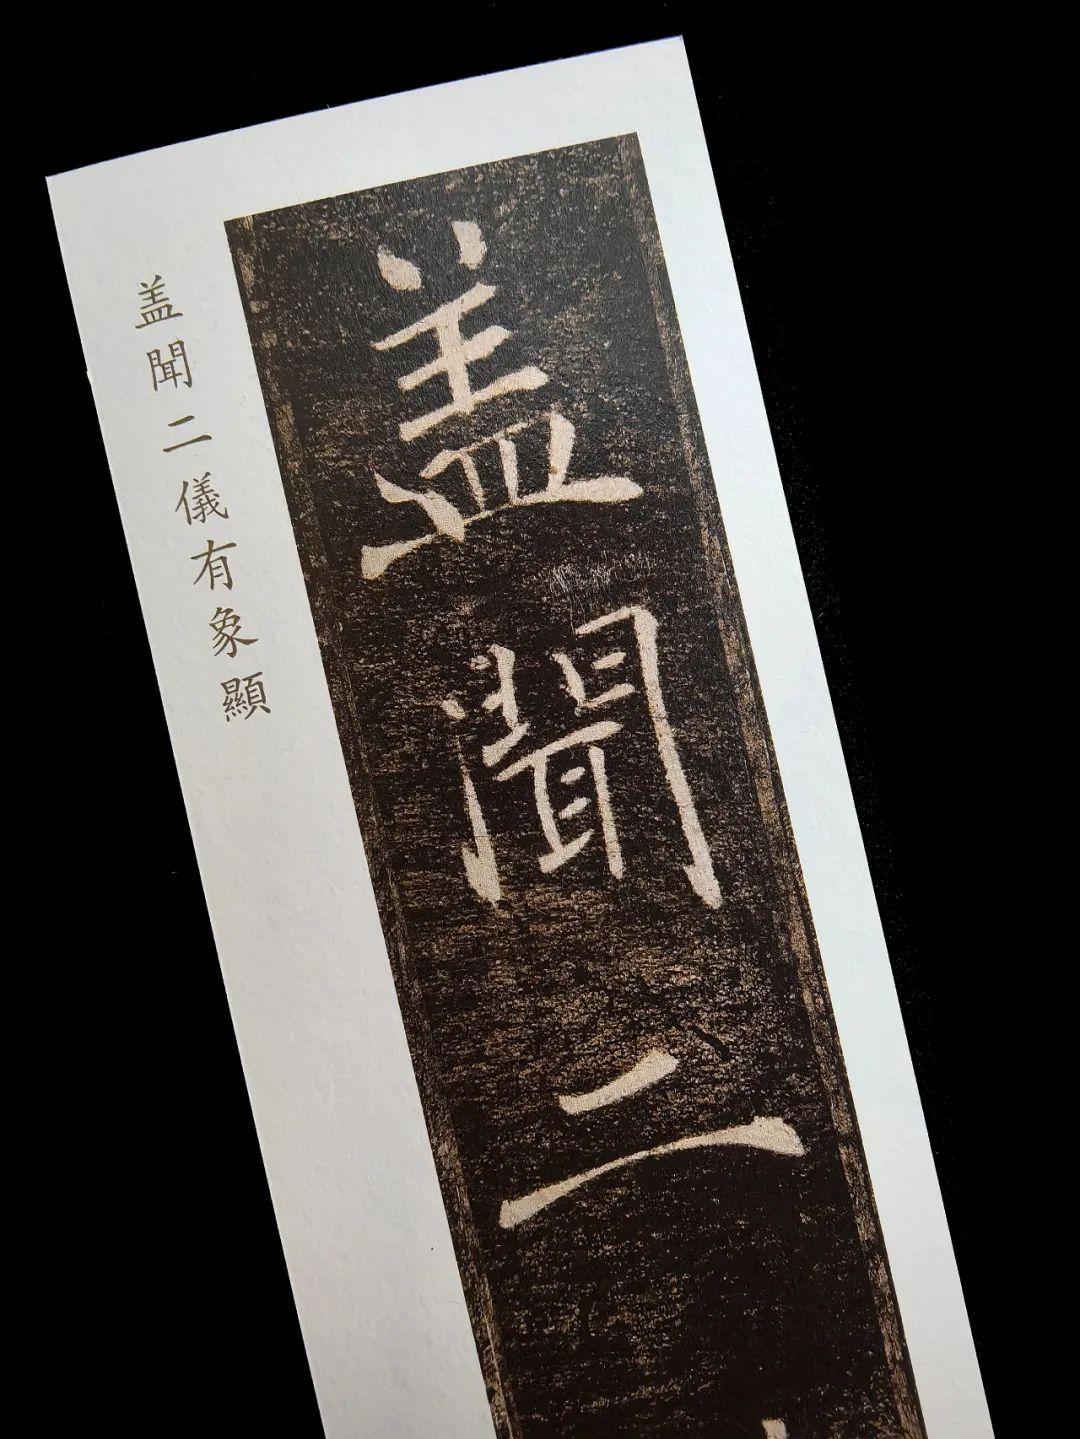 盖聞二
盖聞二儀有象顯